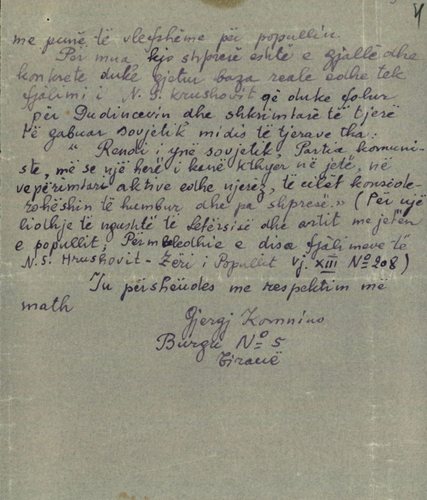 4
me punë të vlefshëme për popullin.
Për mua kjo shpresë është e gjallë dhe
konkrete duke gjetur baza reale edhe tek
fjalimi i N. S. Krushovit që duke folur
për Dudincevin dhe shkrimtarë të tjerë
të gabuar sovjetik midis të tjerave tha:
" Rendi i ynë sovjetik, Partia komuni-
ste, më se një herë i kanë kthyer në jetë, në
vepërimtari aktive edhe njerëz, të cilët konside-
roheshin të humbur dhe pa shpresë.» (Për një
lidhje të ngushtë të letërsisë dhe artit me jetën
e popullit; Përmbledhje e disa fjalimeve të
N. S. Hrushovit - Zëri i Popullit Vj. XIII No 208)
Ju përshëndes me respektim më
math
Gjergj Komnino
Burgu No 5
Tiranë